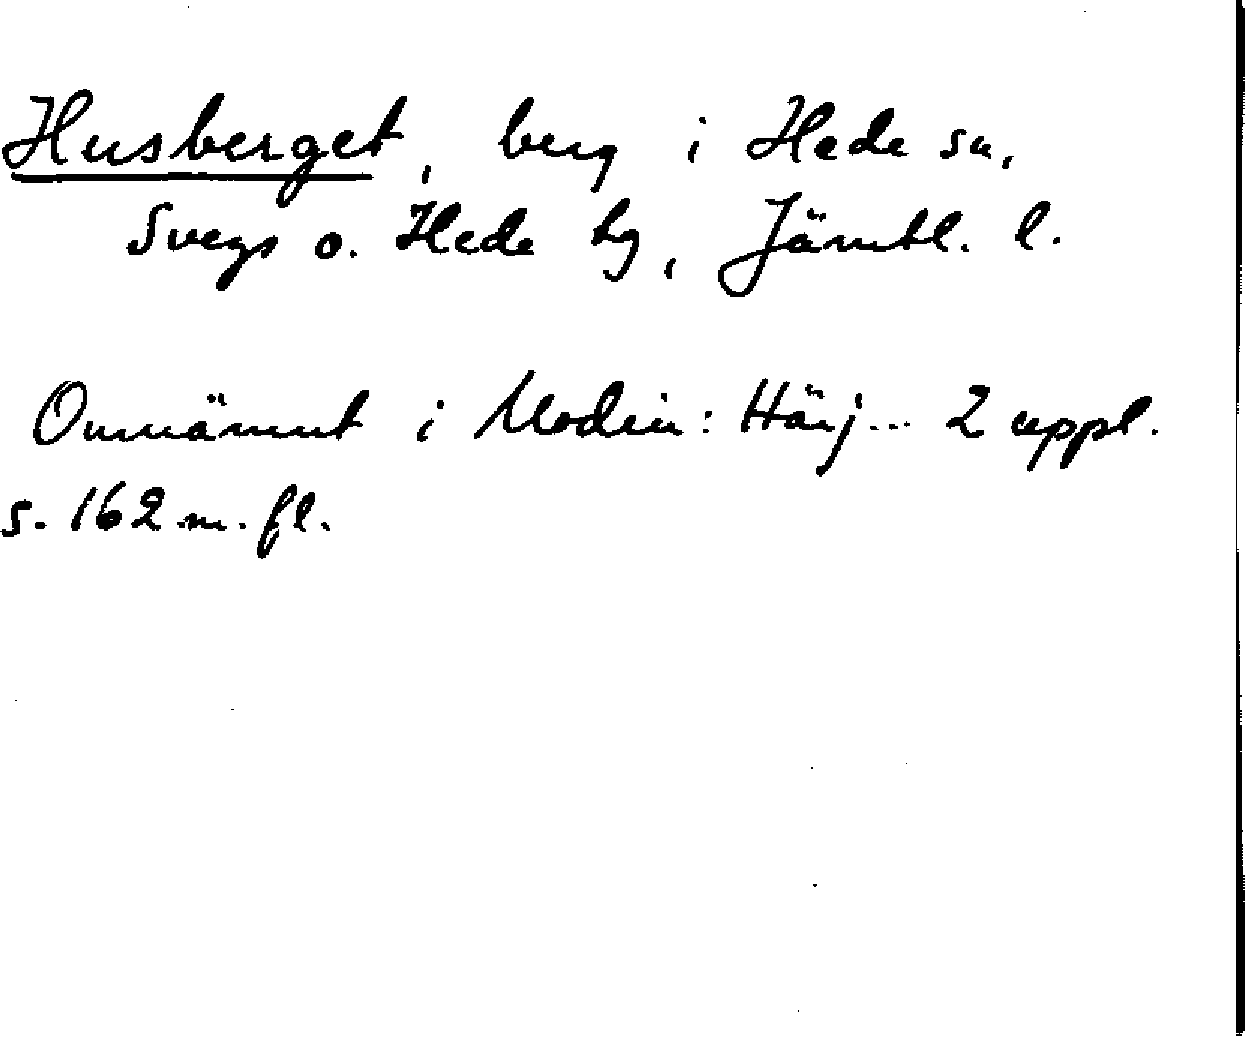 Husberget, berg i Hede sn,
Svegs o. Hede tg, Jämtl. l.
Omnämnt i Modin: Härj... 2 uppl.
s. 162 m. fl.